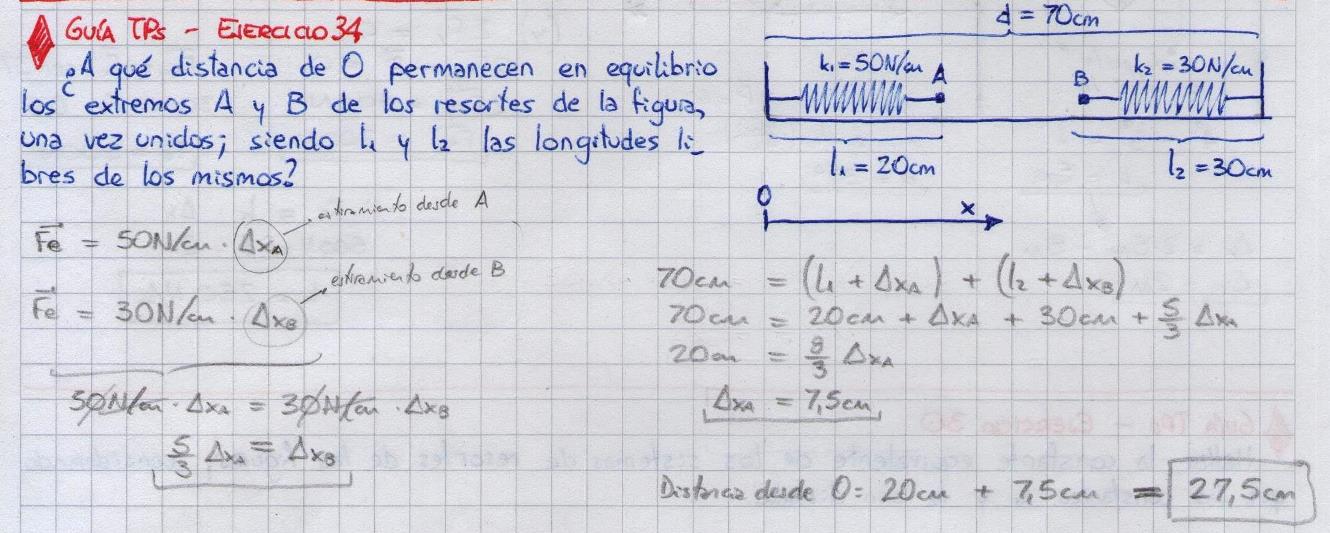 GUÍA TPs - EJERCICIO 34
¿A qué distancia de O permanecen en equilibrio
los extremos A y B de los resortes de la figura,
una vez unidos; siendo l₁ y l₂ las longitudes li_
bres de los mismos?
d = 70cm
k₁ = 50N/cm A
B k₂ = 30N/cm
l₁ = 20cm
l₂ = 30cm
O x
estiramiento desde A
Fe = 50N/cm · ΔxA
estiramiento desde B
Fe = 30N/cm · ΔxB
50N/cm · ΔxA = 30N/cm · ΔxB
5/3 ΔxA = ΔxB
70cm = (l₁ + ΔxA) + (l₂ + ΔxB)
70cm = 20cm + ΔxA + 30cm + 5/3 ΔxA
20cm = 8/3 ΔxA
ΔxA = 7,5cm
Distancia desde O: 20cm + 7,5cm = 27,5cm